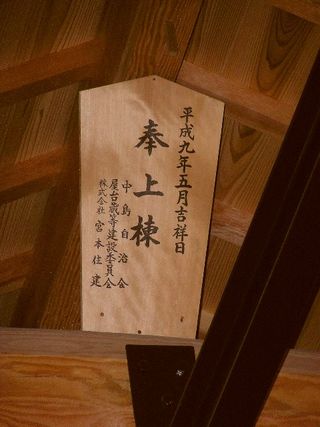 平成九年五月吉祥日
奉上棟
中島自治会
屋台蔵等建設委員会
株式会社 宮本住建